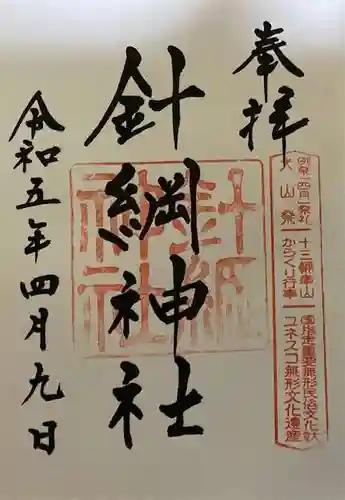 奉拝
針綱神社
令和五年四月九日
針綱
神社
例祭 四月 祭礼
犬山祭
十三輌車山
からくり行事
国指定重要無形民俗文化財
ユネスコ無形文化遺産